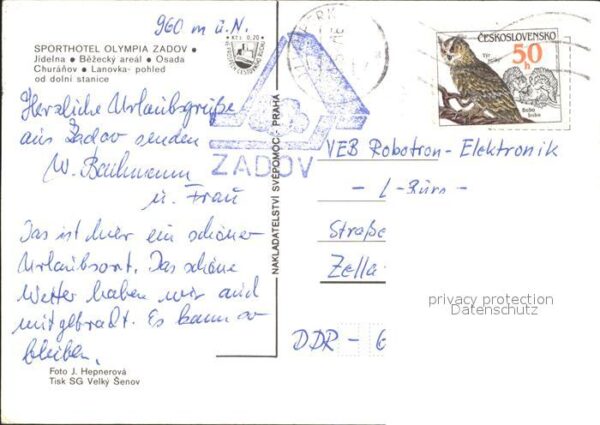 960 m ü. N.
SPORTHOTEL OLYMPIA ZADOV ●
Jídelna ● Běžecký areál ● Osada
Churáňov ● Lanovka- pohled
od dolní stanice
Kčs 0,20
Herzliche Urlaubsgrüße
aus Zadov senden
W. Bachmann
u. Frau
Das ist hier ein schöner
Urlaubsort. Das schöne
Wetter haben wir auch
mitgebracht. Es kann so
bleiben.
Foto J. Hepnerová
Tisk SG Velký Šenov
NAKLADATELSTVÍ SVÉPOMOC - PRAHA
ZADOV
ČESKOSLOVENSKO
50
h
Výr velký
Bubo
bubo
VEB Robotron-Elektronik
- L-Büro -
Straße
Zella-
DDR - 6
privacy protection
Datenschutz